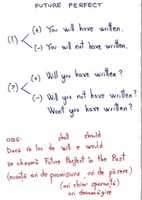 FUTURE PERFECT
(1) (+) You will have written.
(-) You will not have written.
(2) (+) Will you have written?
(-) Will you not have written?
Won't you have written?
OBS: shall should
Dacă în loc de will e would
se cheamă Future Perfect in the Past
(nuanță ori de promisiune, ori de părere)
(ori chiar speranță)